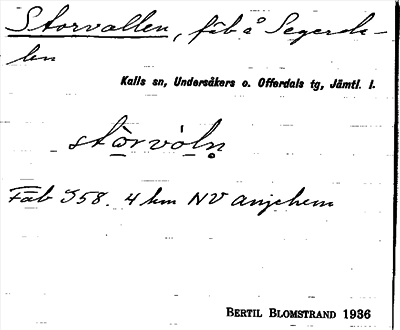 Storvallen, fäb å Segerda-
len
Kalls sn, Undersåkers o. Offerdals tg, Jämtl. l.
stòrvòln̥
Fäb 358. 4 km NV Anjehem
BERTIL BLOMSTRAND 1936